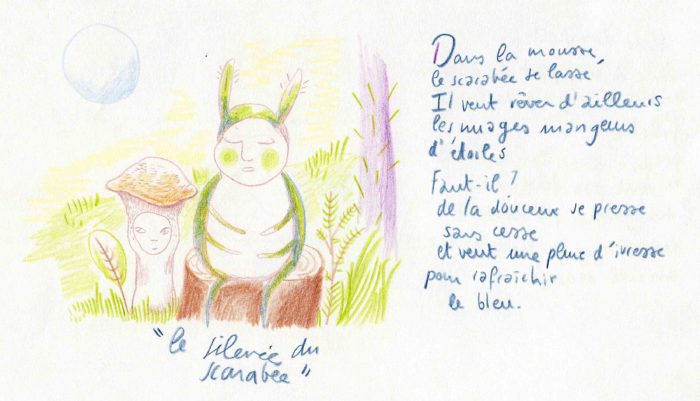 Dans la mousse,
le scarabée se lasse
Il veut rêver d'ailleurs
les nuages mangeurs
d'étoiles
Faut-il ?
de la douceur se presse
sans cesse
et veut une pluie d'ivresse
pour rafraîchir
le bleu.
"le silence du
scarabée"